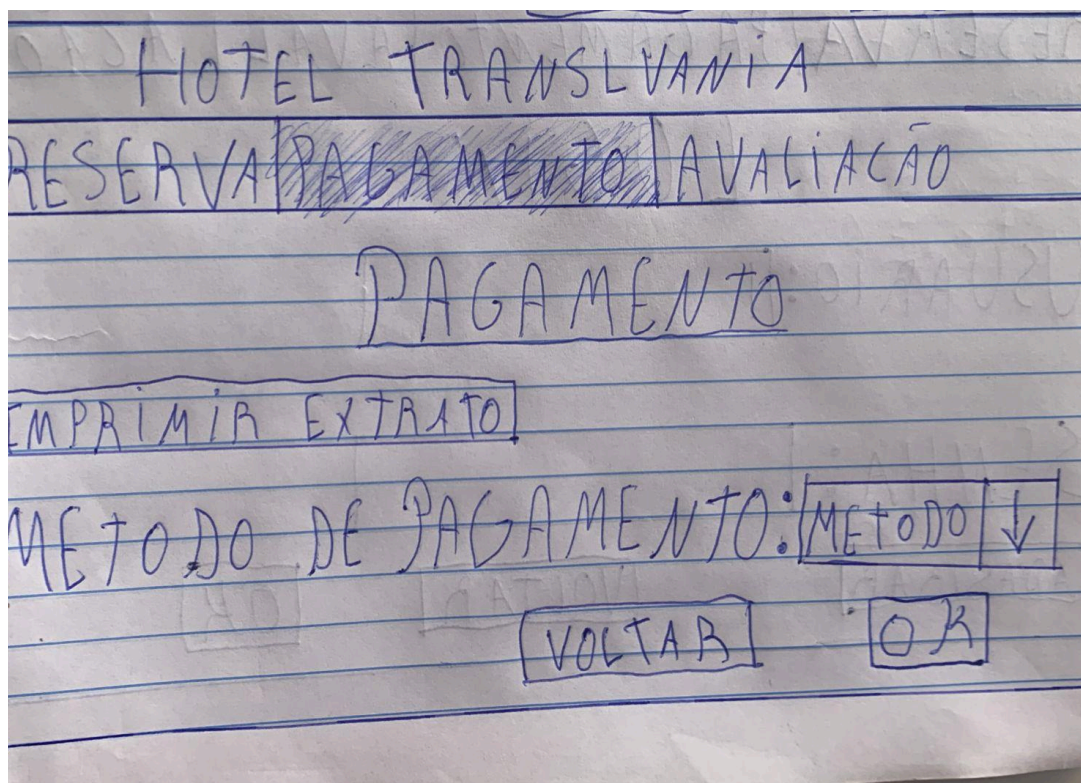 HOTEL TRANSLVANIA
RESERVA PAGAMENTO AVALIAÇÃO
PAGAMENTO
IMPRIMIR EXTRATO
METODO DE PAGAMENTO: METODO ↓
VOLTAR OK